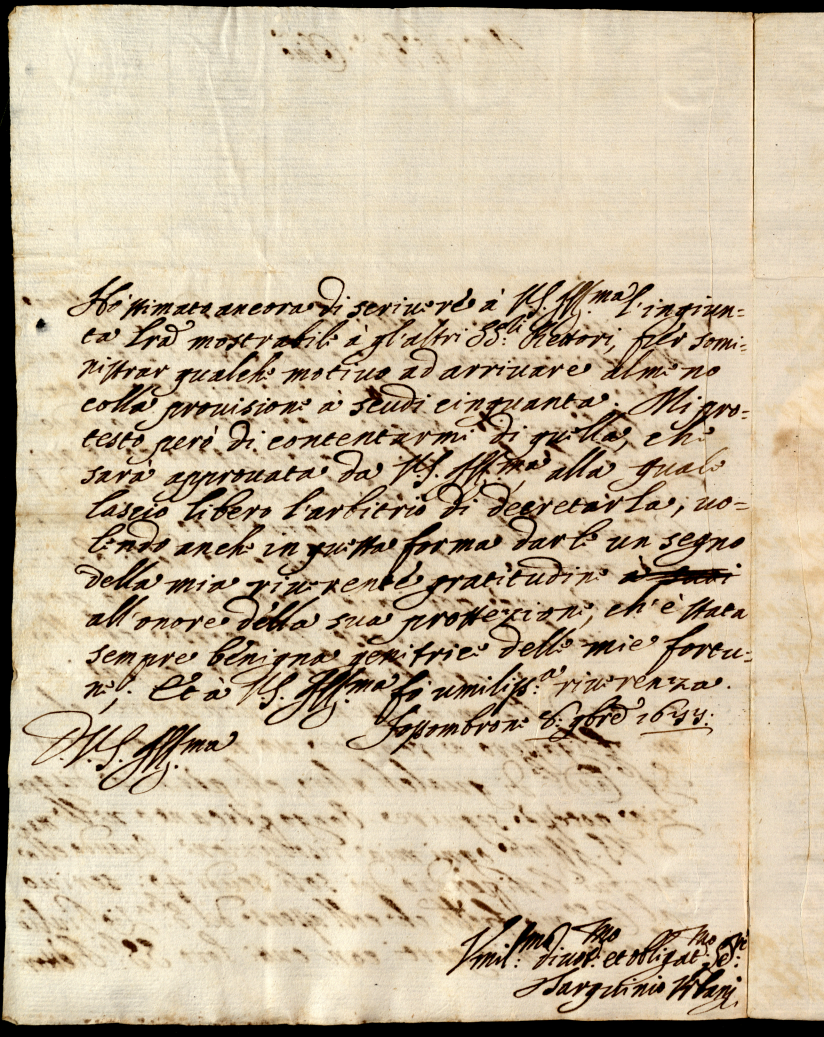 Hò stimato ancora di scriuere à V.S. Ill.ma l'ingiun=
ta l'ra mostrabile à gl'altri SS.ri Rettori, per somi=
nistrar qualche motiuo ad arriuare almeno
colla prouisione à scudi cinquanta. Mi pro=
testo però di contentarmi di quella, che
sarà approuata da V.S. Ill.ma, alla quale
lascio libero l'arbitrio di decretarla, uo=
lendo anche in questa forma darle un segno
della mia riuerente gratitudine a
all'onore della sua protte͏zione, ch'è stata
sempre benigna genitrice delle mie fortu=
ne; Et à V.S. Ill.ma fò umiliss.a riuerenza.
Fossombrone 8: 9bre
D. V.S. Ill.ma
Vmil.mo diuot.mo et obligat.mo
Tarquinio Vrbani